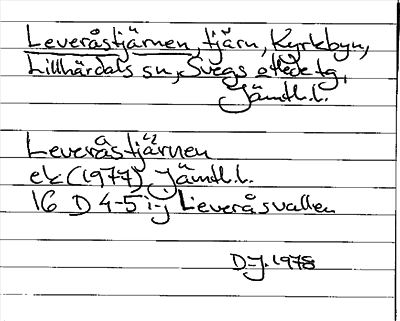 Leveråstjärnen, tjärn, Kyrkbyn,
Lillhärdals sn, Svegs
Jämtl.l.
Leveråstjärnen
ek (1977) Jämtl.l.
16 D 4-5 i-j Leveråsvallen
D-J. 1978